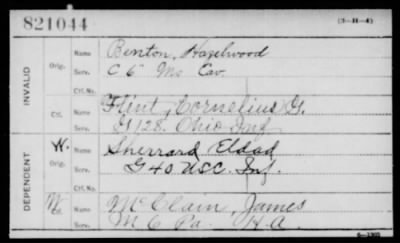 821044 (3-H-4)
INVALID
Orig. Name Benton, Hazelwood
Serv. C 6 Mo Cav.
Ctf. No.
Ctf. Name Flint, Cornelius G.
Serv. G 128. Ohio Inf
DEPENDENT
W. Orig. Name Sherrard Eldad
Serv. G 40 USC. Inf.
Ctf. No.
Ctf. Name McClain, James
Serv. M 6 Pa. H. A.
6-1302